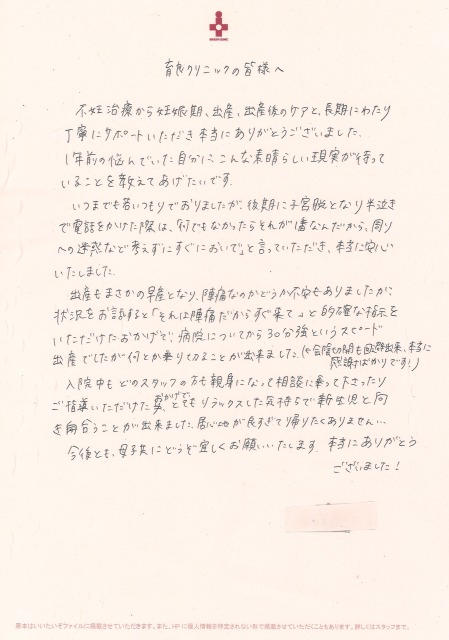 育良クリニックの皆様へ
不妊治療から妊娠期、出産、出産後のケアと、長期にわたり
丁寧にサポートいただき本当にありがとうございました。
1年前の悩んでいた自分に、こんな素晴らしい現実が待って
いることを教えてあげたいです。
いつまでも若いつもりでおりましたが、後期に子宮脱となり半泣き
で電話をかけた際は、「何でもなかったらそれが1番なんだから、周り
への迷惑など考えずにすぐにおいで」と言っていただき、本当に安心
いたしました。
出産もまさかの早産となり、陣痛なのかどうか不安もありましたが、
状況をお話すると「それは陣痛だからすぐ来て」と的確な指示を
いただけたおかげで、病院についてから30分強というスピード
出産でしたが何とか乗りきることが出来ました。(会陰切開も回避出来、本当に
感謝ばかりです!)
入院中もどのスタッフの方も親身になって相談に乗って下さったり
ご指導いただけたおかげで、とてもリラックスした気持ちで新生児と向
き合うことが出来ました。居心地が良すぎて帰りたくありません…
今後とも、母子共にどうぞ宜しくお願いいたします。本当にありがとう
ございました!
原本はいいたいぞファイルに掲載させていただきます。また、HPに個人情報を特定されない形で掲載させていただくこともあります。詳しくはスタッフまで。